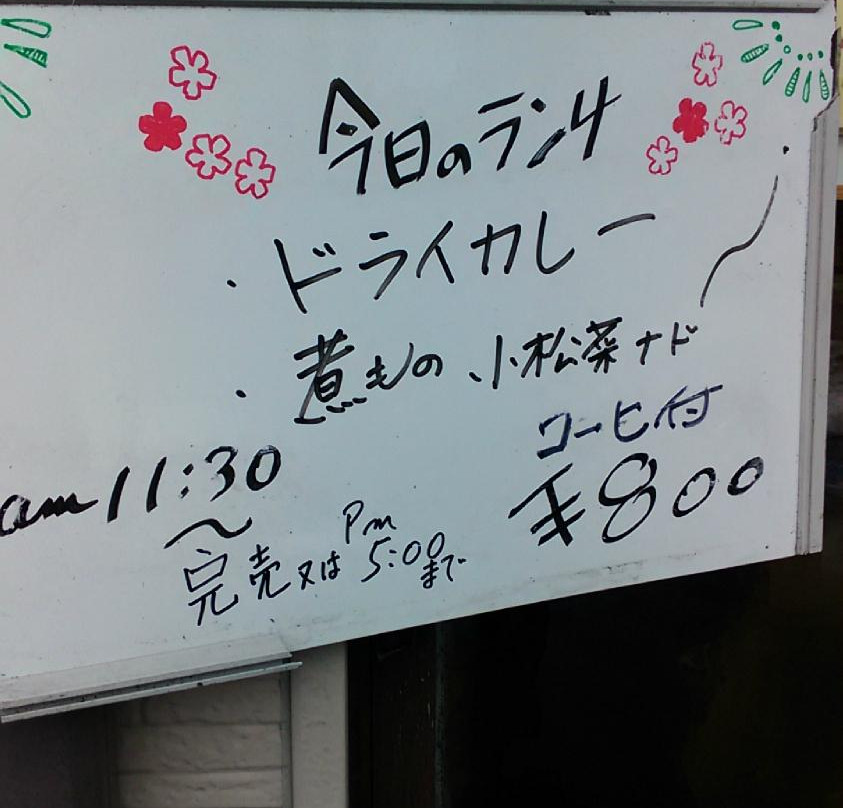 今日のランチ
・ドライカレー
・煮もの 小松菜ナド
コーヒ付
¥800
am 11:30
〜
完売又は pm 5:00 まで